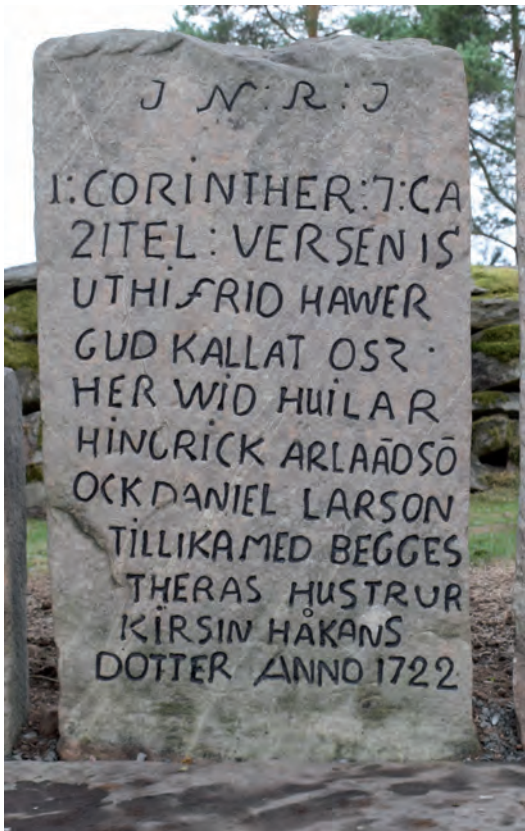 J N:R:J
1:CORINTHER:7:CA
2ITEL:VERSEN IS
UTHI FRID HAWER
GUD KALLAT OSZ.
HER WID HUILAR
HINGRICK ARLAĀDSŌ
OCK DANIEL LARSON
TILLIKAMED BEGGES
THERAS HUSTRUR
KIRSIN HÅKANS
DOTTER ANNO 1722